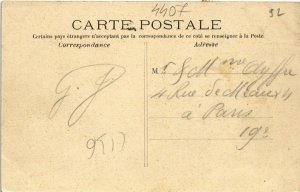 4407
92
CARTE POSTALE
Certains pays étrangers n'acceptant pas la correspondance de ce coté se renseigner à la Poste
Correspondance
Adresse
M
& Mme
4 Rue de Meaux 4
à Paris
19e